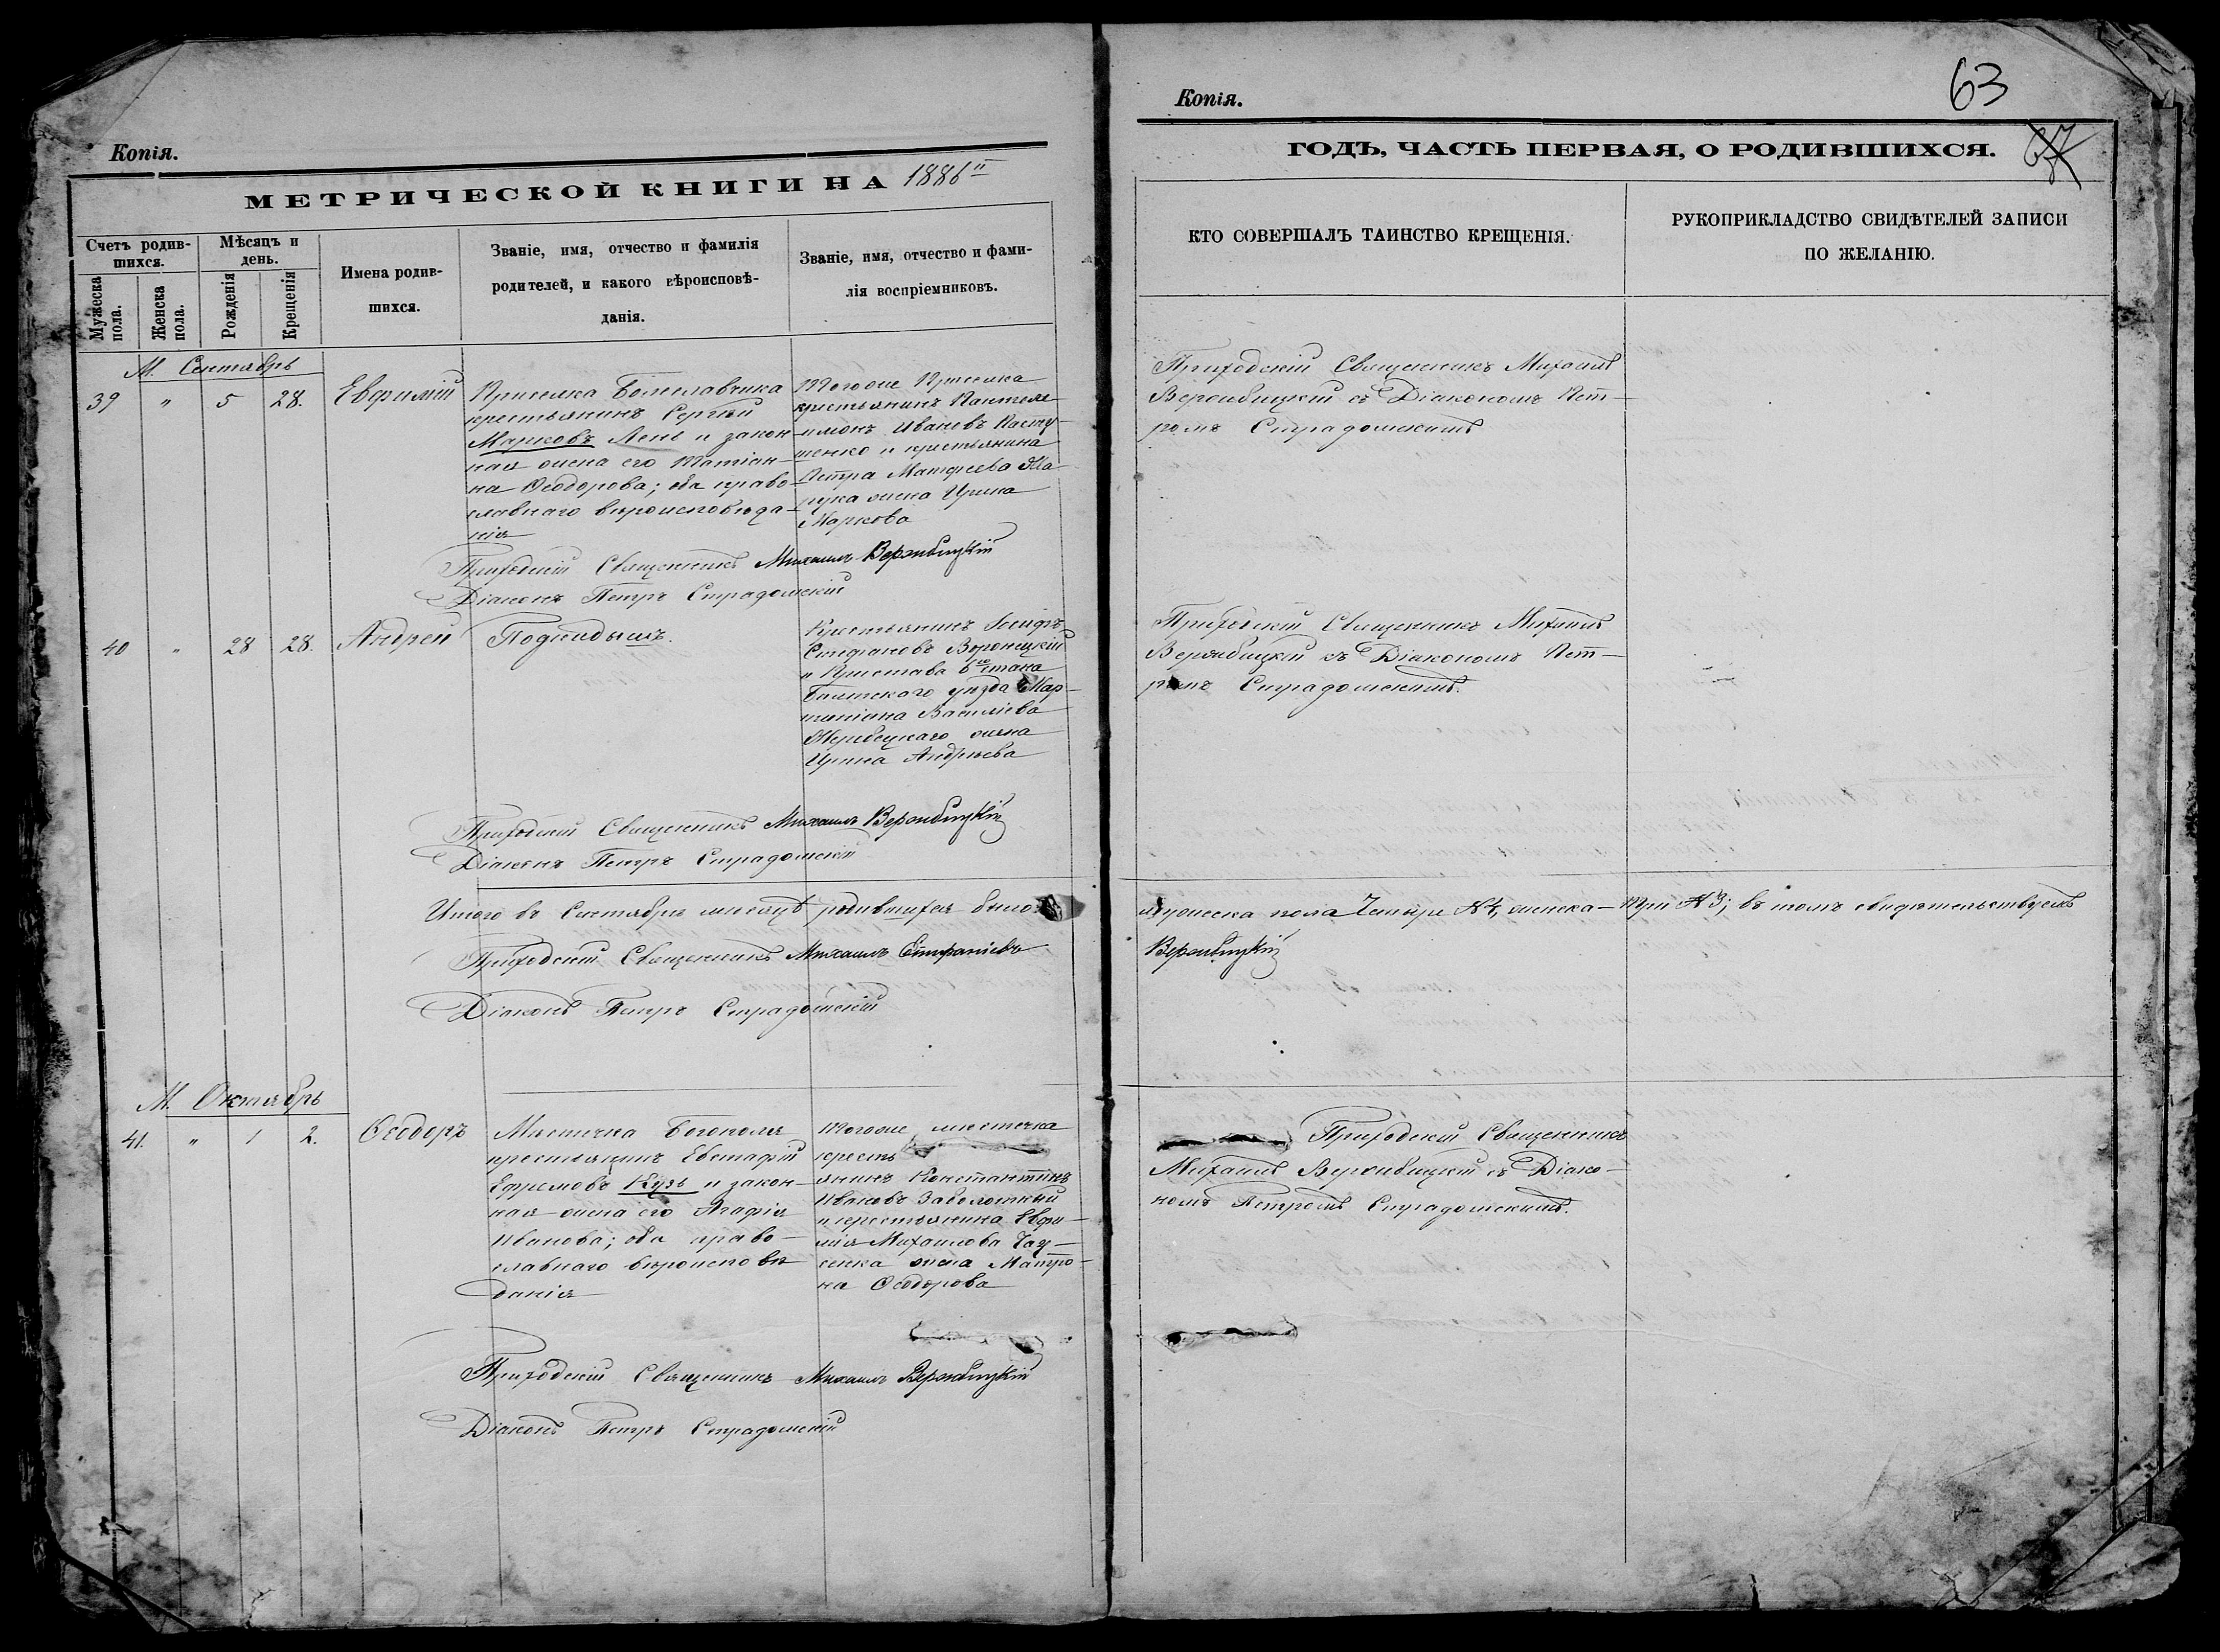 Копія.
МЕТРИЧЕСКОЙ КНИГИ НА 1886й
Счетъ родив-
шихся.
Мужеска
пола.
Женска
пола.
Мѣсяцъ и
день.
Рожденія
Крещенія
Имена родив-
шихся.
Званіе, имя, отчество и фамилія
родителей, и какого вѣроисповѣ-
данія.
Званіе, имя, отчество и фами-
лія воспріемниковъ.
М. Сентябрь
39 " 5 28. Евфимій
Приселка
крестьянинъ Сергій
Марковъ Лень и закон-
ная жена его Татіан-
на Ѳеодорова; оба право-
славнаго вѣроисповѣда-
нія
Тогоже Приселка
крестьянинъ Пантеле-
имонъ Ивановъ
и крестьянина
Петра Матфеева
жена Ирина
Маркова
Приходскій Священникъ Михаилъ Вержбицкій
Діаконъ Петръ Страдомскій
40 " 28 28. Андрей
Подкидышъ.
Крестьянинъ Іосифъ
Стефановъ Воронецкій
и Пристава 6го стана
Балтскаго уѣзда Мар-
тиніана Василіева
жена
Ирина Андреева
Приходскій Священникъ Михаилъ Вержбицкій
Діаконъ Петръ Страдомскій
Итого въ Сентябрѣ мѣсяцѣ родившихся было
Приходскій Священникъ Михаилъ
Діаконъ Петръ Страдомскій
М. Октябрь
41. " 1 2. Ѳеодоръ
Мѣстечка Богополя
крестьянинъ Евстафій
Ефремовъ Кузь и закон-
ная жена его Агафія
Иванова; оба право-
славнаго вѣроисповѣ-
данія
Тогоже мѣстечка
кресть
янинъ Константинъ
Ивановъ Заболотный
и крестьянина Евфи-
мія Михаилова
жена Матро-
на Ѳеодорова
Приходскій Священникъ Михаилъ Вержбицкій
Діаконъ Петръ Страдомскій
Копія.
63
37
ГОДЪ, ЧАСТЬ ПЕРВАЯ, О РОДИВШИХСЯ.
КТО СОВЕРШАЛЪ ТАИНСТВО КРЕЩЕНІЯ.
РУКОПРИКЛАДСТВО СВИДѢТЕЛЕЙ ЗАПИСИ
ПО ЖЕЛАНІЮ.
Приходскій Священникъ Михаилъ
Вержбицкій съ Діакономъ Пет-
ромъ Страдомскимъ
Приходскій Священникъ Михаилъ
Вержбицкій съ Діакономъ Пет-
ромъ Страдомскимъ.
мужеска пола Четыре №4, женска- три №3; въ томъ свидѣтельствуемъ
Вержбицкій
Приходскій Священникъ
Михаилъ Вержбицкій съ Діако-
номъ Петромъ Страдомскимъ.